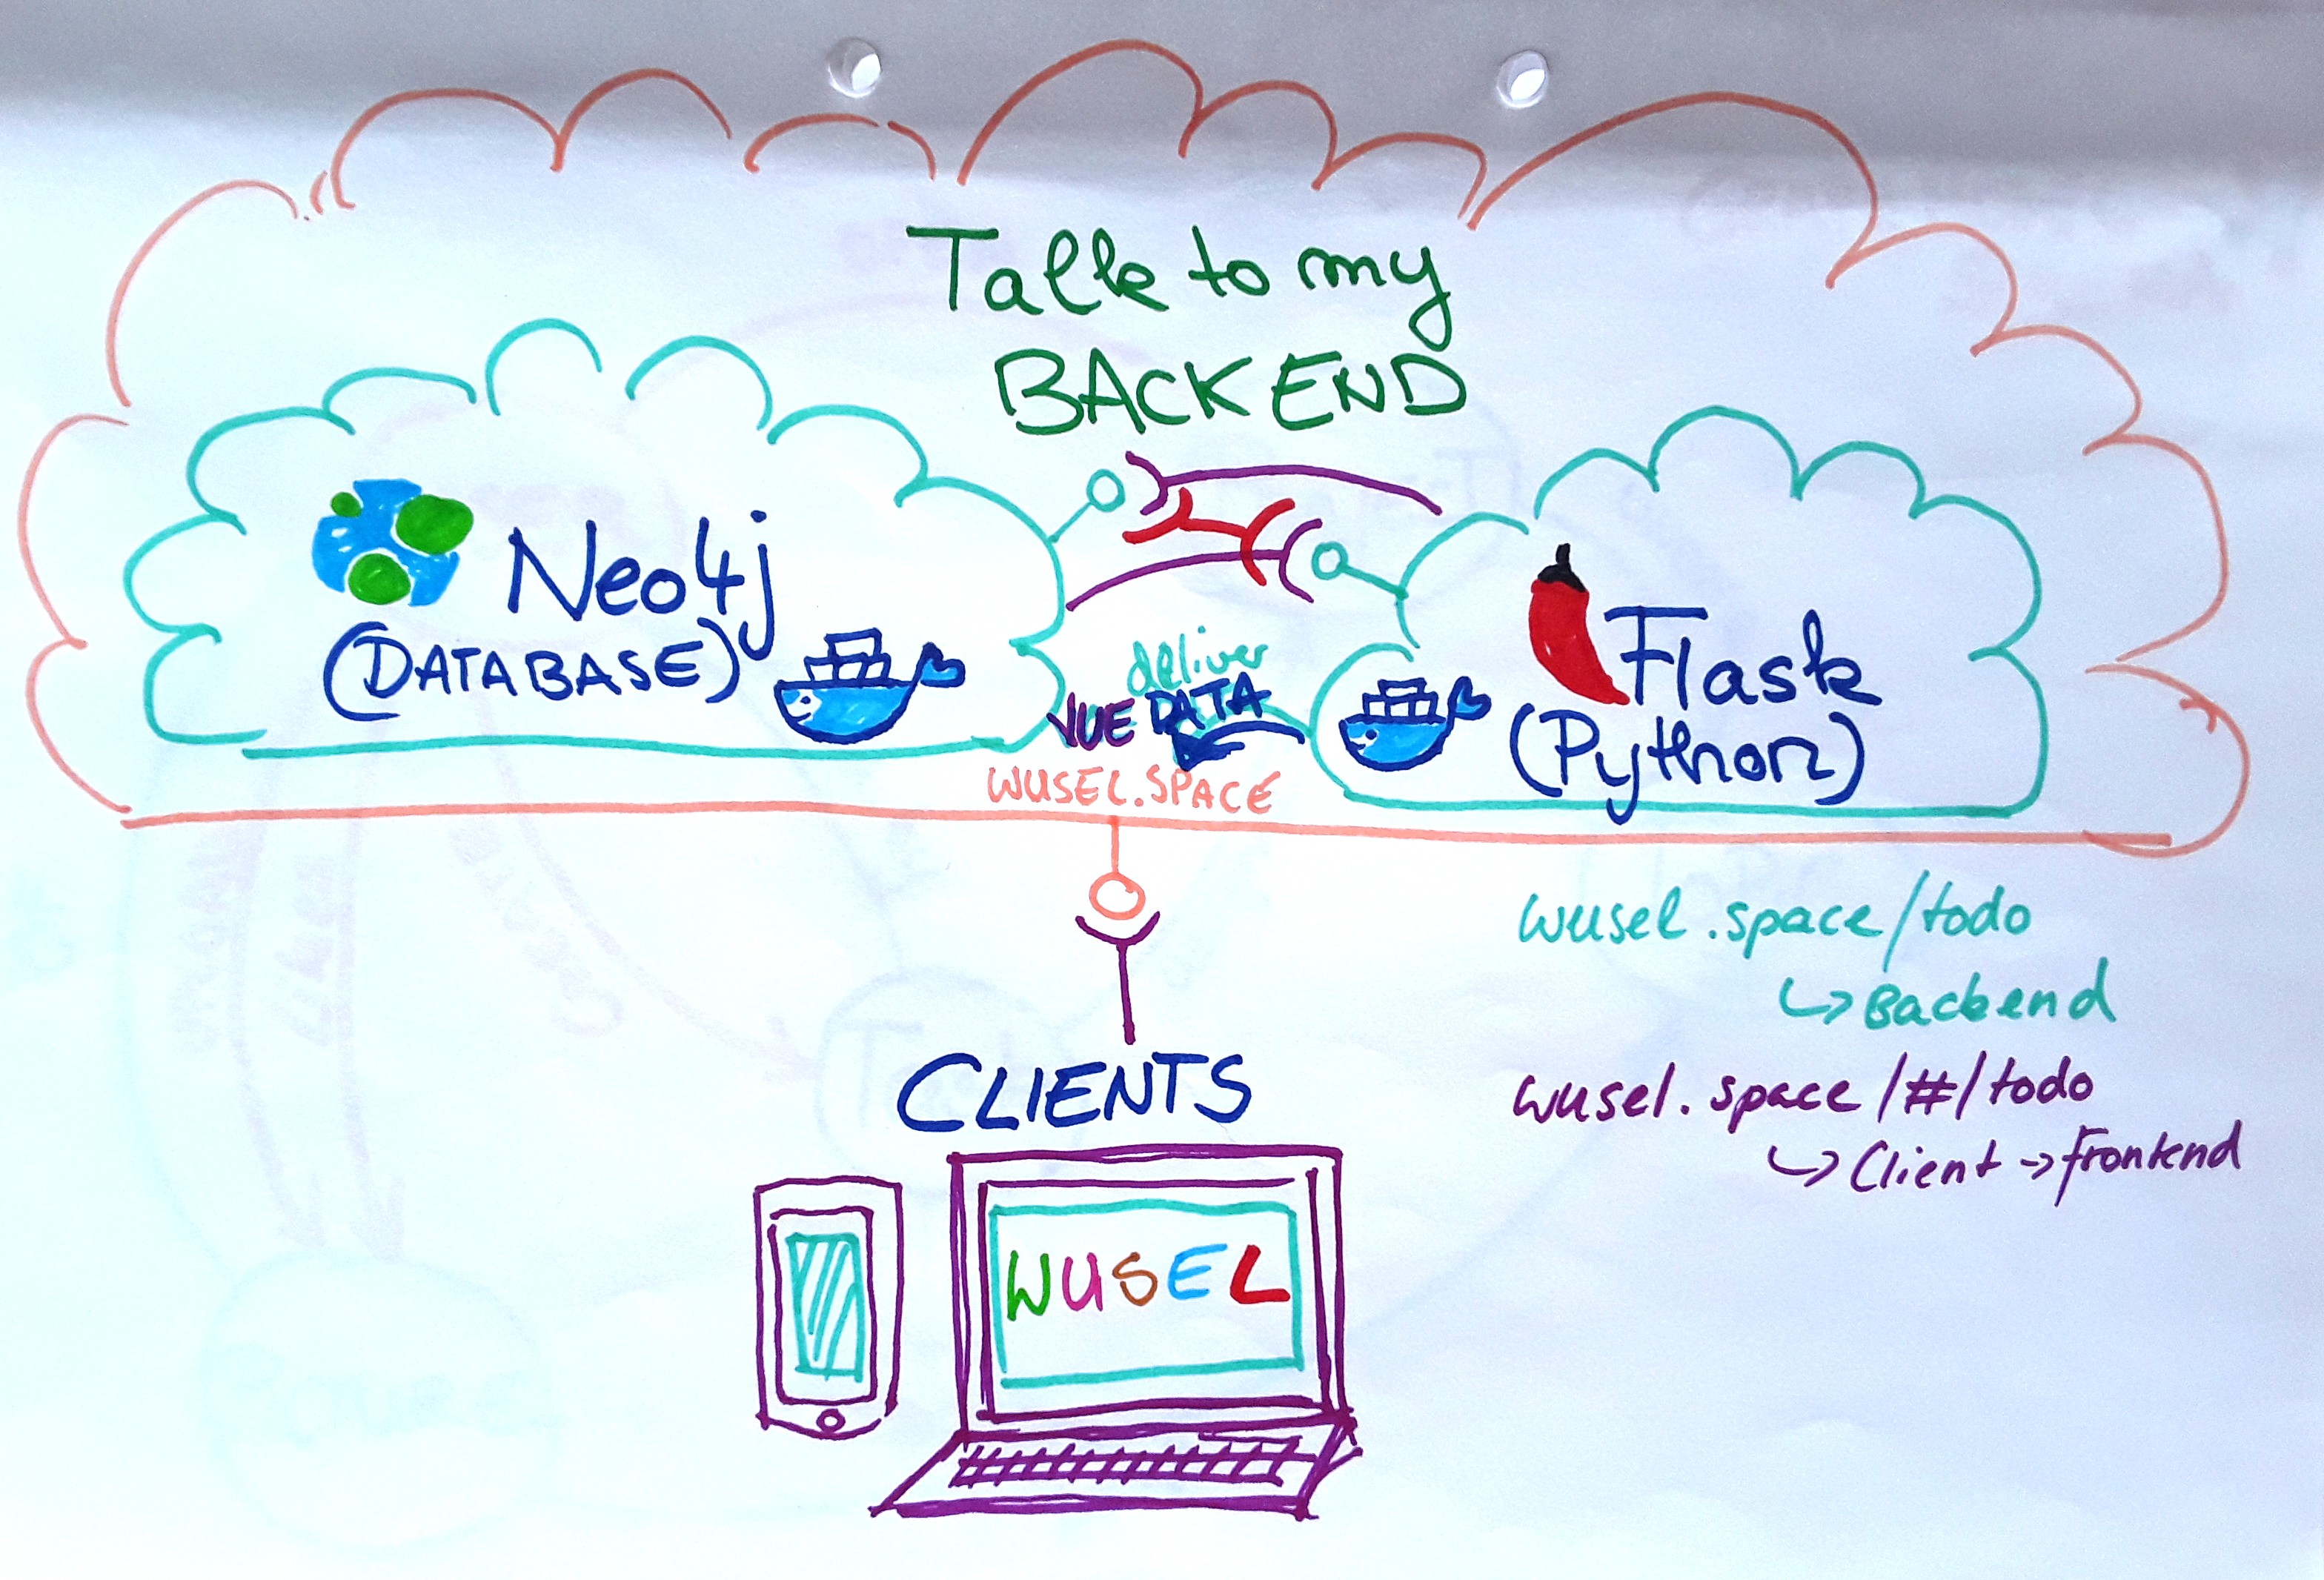 Talk to my
BACKEND
Neo4j
(DATABASE)
deliver
VUE DATA
WUSEL.SPACE
Flask
(Python)
wusel.space/todo
↳ Backend
wusel.space/#/todo
↳ Client → Frontend
CLIENTS
WUSEL